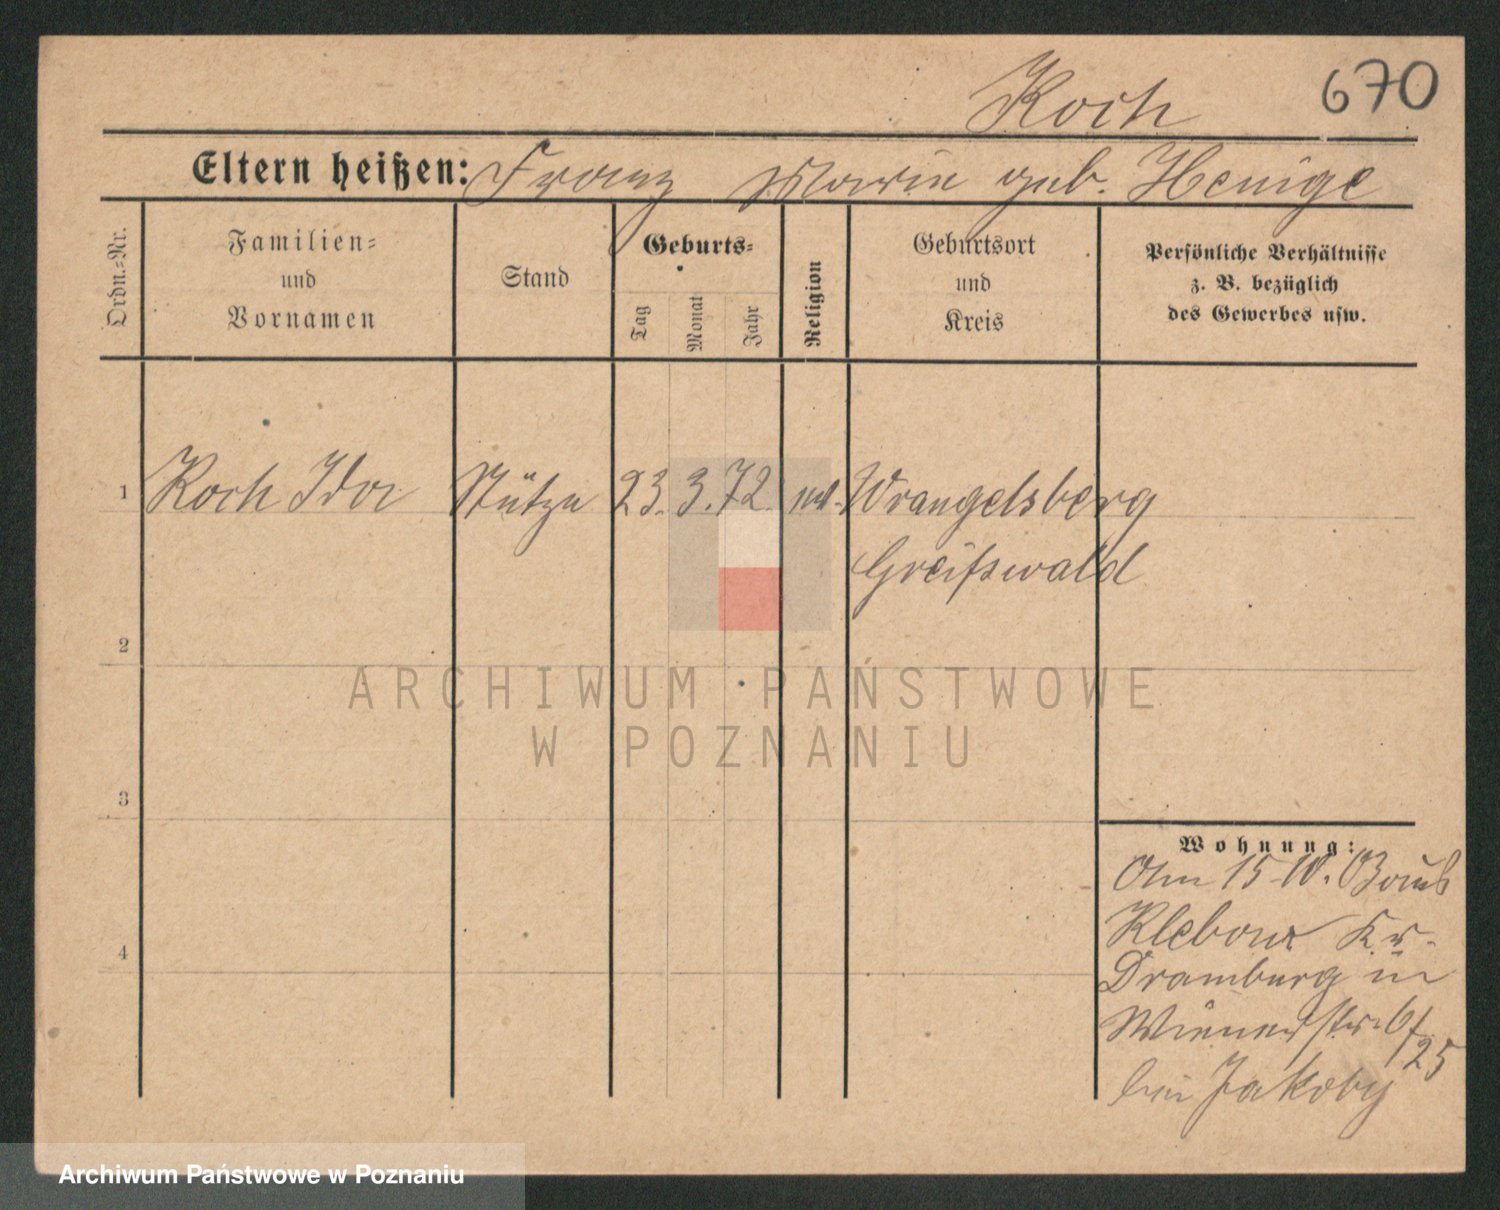 Koch
670
Eltern heißen: Franz Marie geb. Henige
Ordn.-Nr.
Familien-
und
Vornamen
Stand
Geburts-
Tag
Monat
Jahr
Religion
Geburtsort
und
Kreis
Persönliche Verhältnisse
z. B. bezüglich
des Gewerbes usw.
1 Koch Ida Stütze 23. 3. 72. Wrangelsberg
Greifswald
2
ARCHIWUM PAŃSTWOWE
W POZNANIU
3
Wohnung:
Am 15
Klebow Kr.
4
Dramburg in
Wienerstr. 6/
25
bei Jakoby
Archiwum Państwowe w Poznaniu